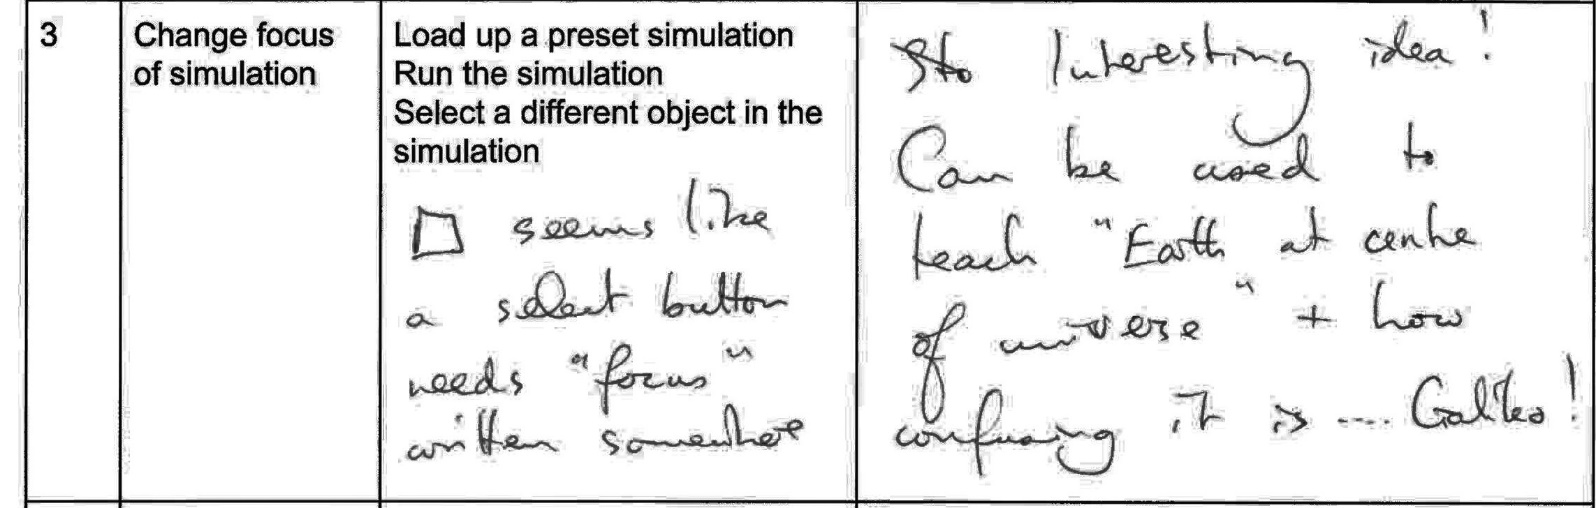 3
Change focus
of simulation
Load up a preset simulation
Run the simulation
Select a different object in the
simulation
seems like
a select button
needs "focus"
written somewhere
Interesting idea!
Can be used to
teach "Earth at centre
of universe" + how
confusing it is .... Galileo!